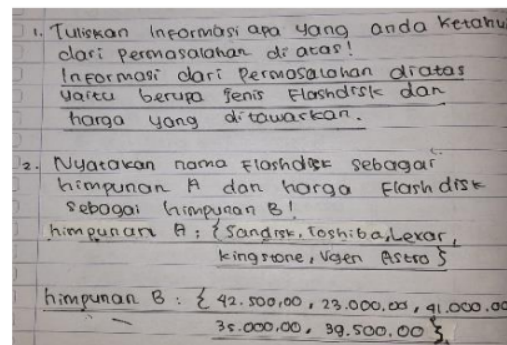 1. Tuliskan Informasi apa yang anda ketahui
dari permasalahan di atas!
Informasi dari Permosalahan diatas
yaitu berupa jenis Flashdisk dan
harga yang ditawarkan.
2. Nyatakan nama Flashdisk sebagai
himpunan A dan harga Flash disk
sebagai himpunan B!
himpunan A : {Sandisk, Toshiba, Lexar,
kingstone, Vgen Astro}
himpunan B : { 42.500,00, 23.000,00, 41.000.00
35.000,00, 39.500.00 }.